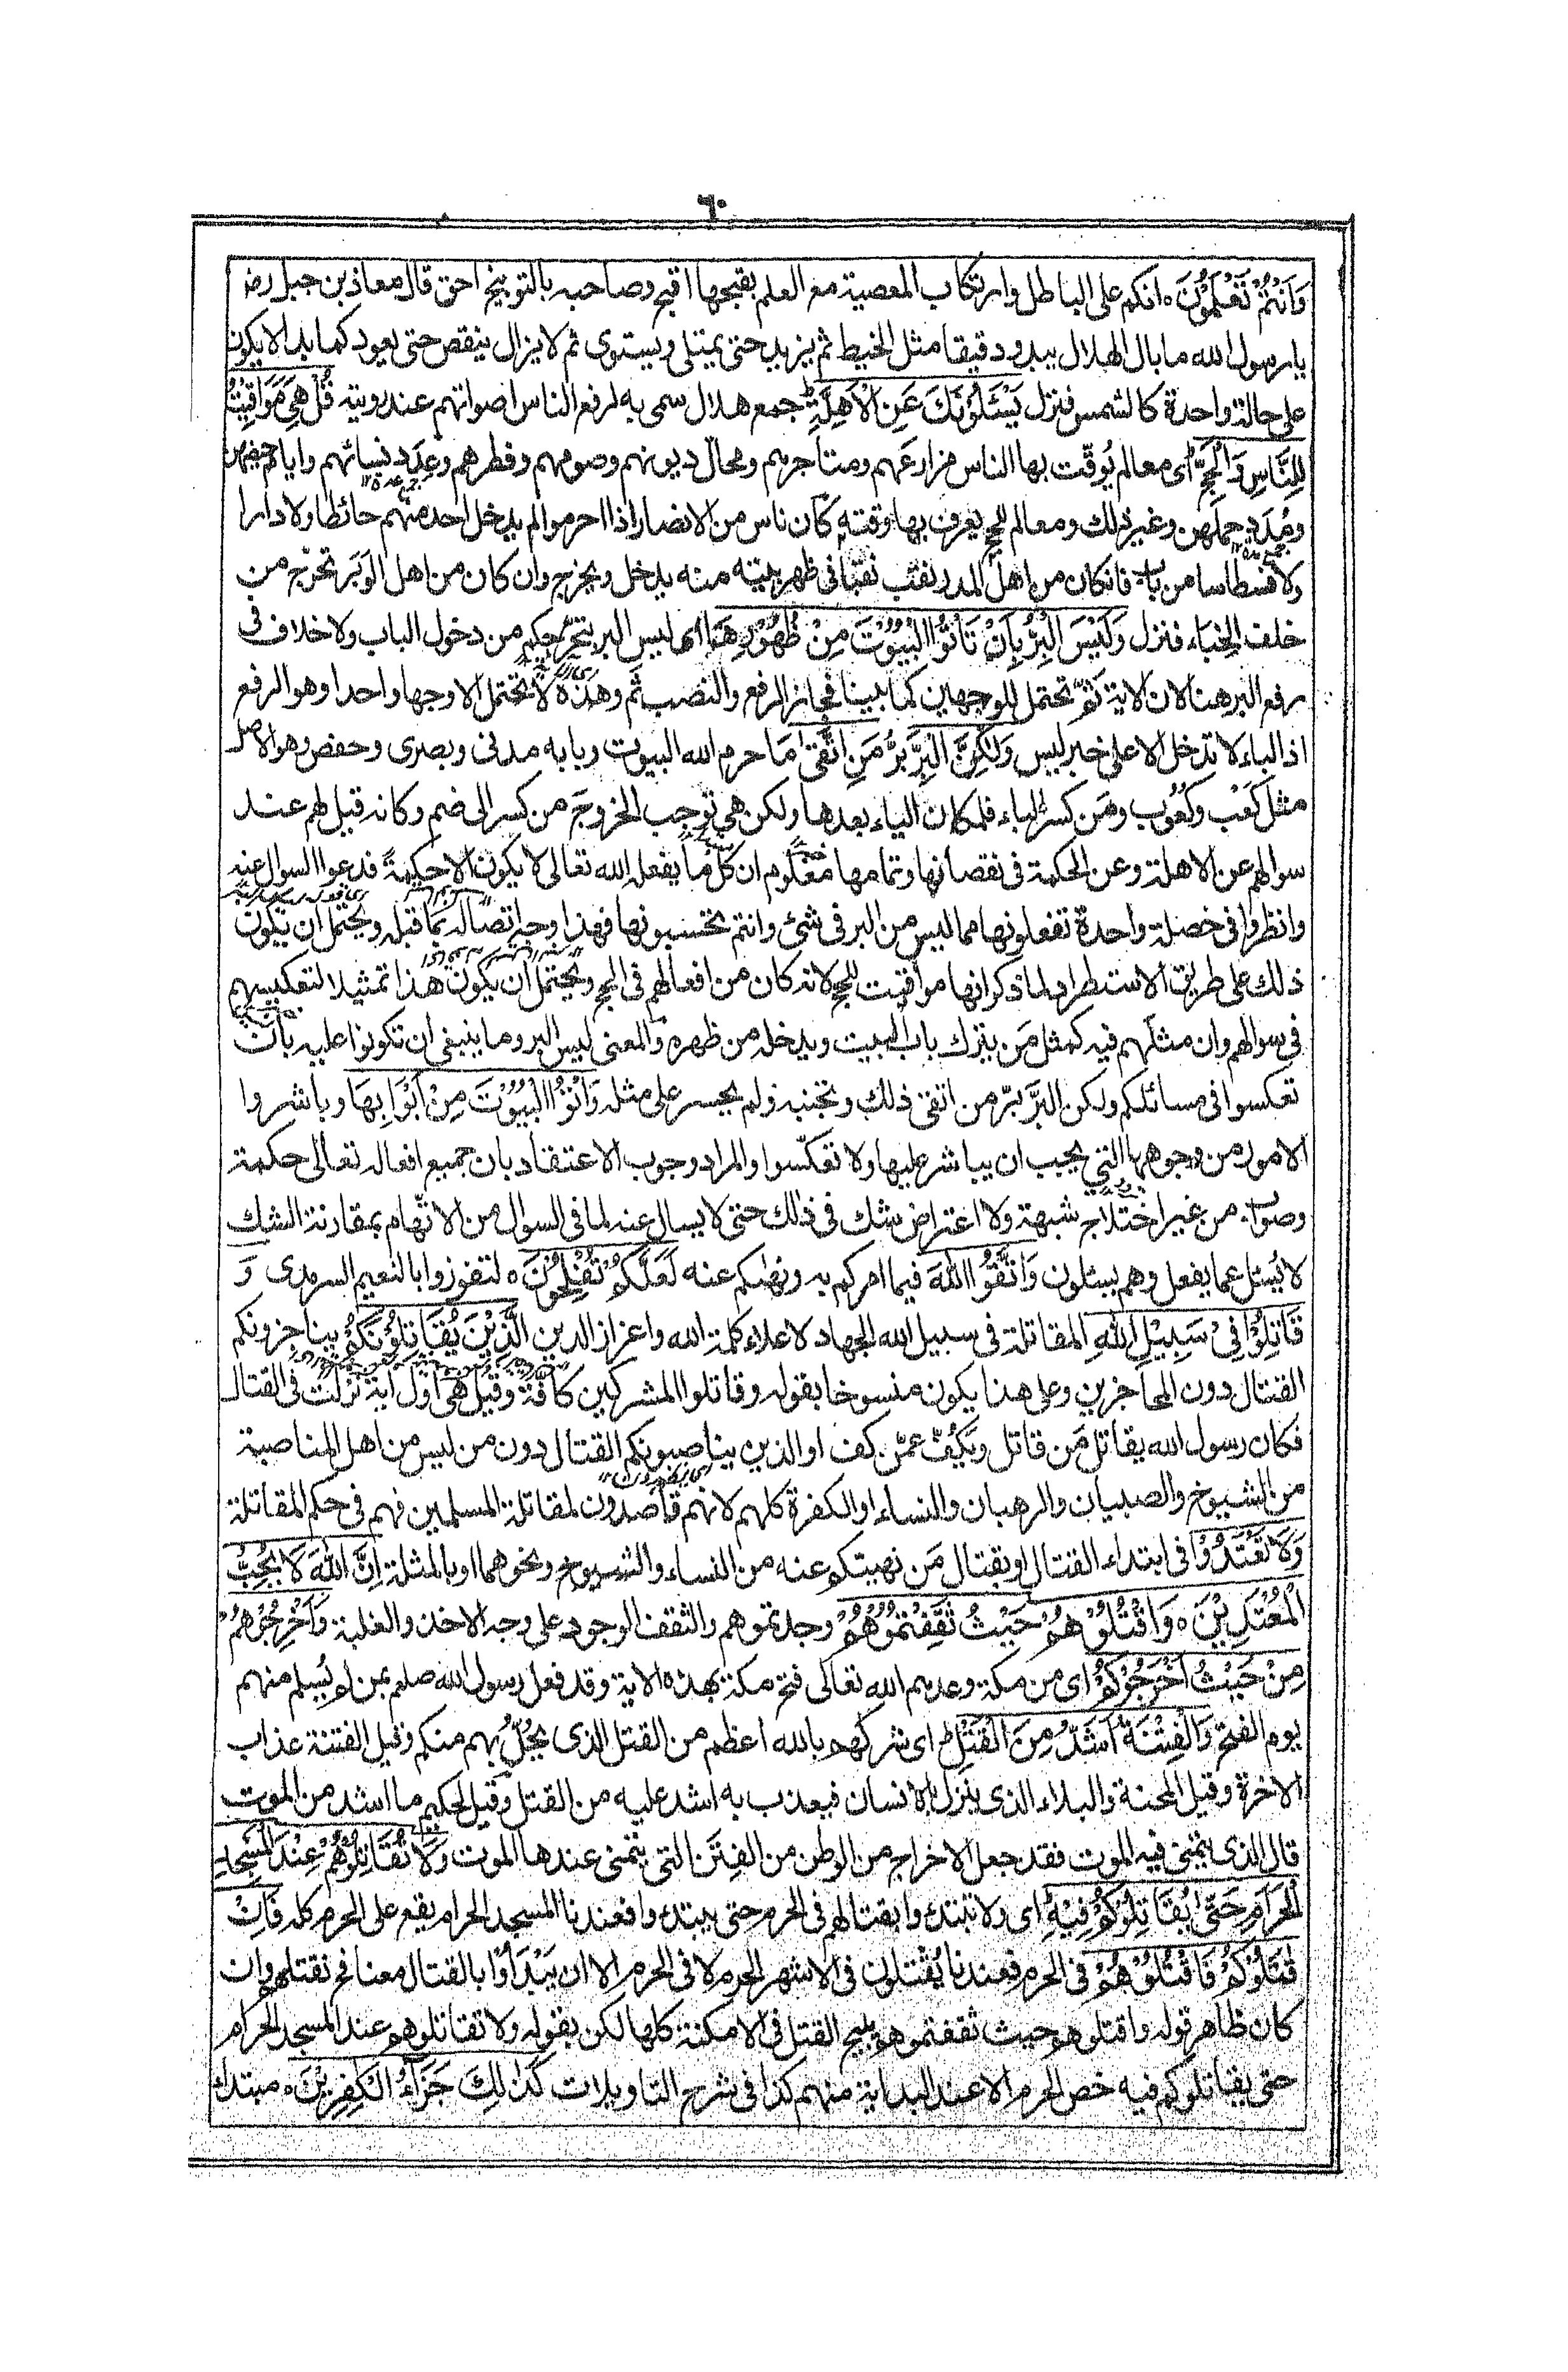 ٦٠
وَاَنْتُمْ تَعْلَمُوْنَ ٥ انكم على الباطل وارتكاب المعصية مع العلم بقبحها اقبح وصاحبه بالتوبيخ احق قال معاذ بن جبل رضـ
يا رسول الله ما بال الهلال يبدو دقيقا مثل الخيط ثم يزيد حتى يمتلى ويستوى ثم لا يزال ينقص حتى يعود كما بدا لا يكون
على حالة واحدة كالشمس فنزل يَسْئَلُوْنَكَ عَنِ الْاَهِلَّةِ ط جمع هلال سمى به لرفع الناس اصواتهم عند رويته قُلْ هِيَ مَوَاقِيْتُ
لِلنَّاسِ وَالْحَجِّ اى معالم يُوقّت بها الناس مزارعَهم ومتاجرهم ومحالّ ديونهم وصومهم وفطرهم وعِدَد نسائهم وايام حيضهن
ومُدَد حملهن وغير ذلك ومعالم للحج يعرف بها وقته كان ناس من الانصار اذا احرموا لم يدخل احد منهم حائطا ولا دارا
ولا فسطاسا من باب فانكان من اهل المدر نقب نقبا فى ظهر بيته منه يدخل ويخرج وان كان من اهل الوَبَر تخرج من
خلف الخباء فنزل وَلَيْسَ الْبِرُّ بِاَنْ تَاْتُوا الْبُيُوْتَ مِنْ ظُهُوْرِهَا اى ليس البر بتحرّجكم من دخول الباب ولا خلاف فى
رفع البر هنا لان الاية ثَمّ تحتمل للوجهين كما بينا فجاز الرفع والنصب ثَم وهذه لا تحتمل الا وجها واحدا وهو الرفع
اذ الباء لا تدخل الا على خبر ليس وَلٰكِنَّ الْبِرَّ بِرُّ مَنِ اتَّقٰى ما حرم الله البيوت وبابه مدنى وبصرى وحفص وهو الاصل
مثل كَعْب وكُعُوب ومَن كسر الباء فلمكان الياء بعدها ولكن هى توجب الخروجَ من كسر الى ضم وكانه قيل لهم عند
سوالهم عن الاهلة وعن الحكمة فى نقصانها وتمامها معلوم ان كل ما يفعله الله تعالى لا يكون الا حكمةً فدعوا السوال عنه
وانظروا فى خصلة واحدة تفعلونها مما ليس من البر فى شئ وانتم تحتسبونها فهذا وجه اتصاله بما قبله ويحتمل ان يكون
ذلك على طريق الاستطراد لما ذكر انها مواقيت للحج لانه كان من افعالهم فى الحج ويحتمل ان يكون هذا تمثيلا لتعكيسهم
فى سوالهم وان مثلهم فيه كمثل مَن يترك باب البيت ويدخله من ظهره والمعنى ليس البر وما ينبغى ان تكونوا عليه بان
تعكسوا فى مسائلكم ولكن البَرّ بِرّ من اتقى ذلك وتجنبه ولم يجسر على مثله وَاْتُوا الْبُيُوْتَ مِنْ اَبْوَابِهَا وباشروا
الامور من وجوهها التى يجب ان يباشر عليها ولا تعكسوا والمراد وجوب الاعتقاد بان جميع افعاله تعالى حكمة
وصواب من غير اختلاج شبهة ولا اعتراض شك فى ذلك حتى لا يسال عنه لما فى السوال من الاتّهام بمقارنة الشك
لا يُسئل عما يفعل وهم يسئلون وَاتَّقُوا اللهَ فيما امركم به ونهٰىكم عنه لَعَلَّكُمْ تُفْلِحُوْنَ ٥ لتفوزوا بالنعيم السرمدى وَ
قَاتِلُوْا فِيْ سَبِيْلِ اللهِ المقاتلة فى سبيل الله الجهاد لاعلاء كلمة الله واعزاز الدين الَّذِيْنَ يُقَاتِلُوْنَكُمْ يناجزونكم
القتال دون المحاجزين وعلى هذا يكون منسوخا بقوله وقاتلوا المشركين كافة وقيل هى اول اية نزلت فى القتال
فكان رسول الله يقاتل مَن قاتل ويَكُفّ عمّن كف او الذين يناصبونكم القتال دون من ليس من اهل المناصبة
من الشيوخ والصبيان والرهبان والنساء او الكفرة كلهم لانهم قاصدون لمقاتلة المسلمين فهم فى حكم المقاتلة
وَلَا تَعْتَدُوْا فى ابتداء القتال او بقتال مَن نهيتكم عنه من النساء والشيوخ ونحوهما او بالمثلة اِنَّ اللهَ لَا يُحِبُّ
الْمُعْتَدِيْنَ ٥ وَاقْتُلُوْهُمْ حَيْثُ ثَقِفْتُمُوْهُمْ وجدتموهم والثقف الوجود على وجه الاخذ والغلبة وَاَخْرِجُوْهُمْ
مِنْ حَيْثُ اَخْرَجُوْكُمْ اى من مكة وعدهم الله تعالى فتح مكة بهذه الاية وقد فعل رسول الله صلعم بمن لم يُسلم منهم
يوم الفتح وَالْفِتْنَةُ اَشَدُّ مِنَ الْقَتْلِ ط اى شركهم بالله اعظم من القتل الذى يحُلّ بهم منكم وقيل الفتنة عذاب
الاخرة وقيل المحنة والبلاء الذى ينزل بالانسان فيعذب به اشد عليه من القتل وقيل لحكيم ما اشد من الموت
قال الذى يتمنى فيه الموت فقد جعل الاخراج من الوطن من الفِتَن التى يتمنى عندها الموت وَلَا تُقَاتِلُوْهُمْ عِنْدَ الْمَسْجِدِ
الْحَرَامِ حَتّٰى يُقَاتِلُوْكُمْ فِيْهِ اى ولا تبتدءوا بقتالهم فى الحرم حتى يبتدءوا فعندنا المسجد الحرام يقع على الحرم كله فَاِنْ
قٰتَلُوْكُمْ فَاقْتُلُوْهُمْ فى الحرم فعندنا يُقْتلون فى الاشهر الحرم لا فى الحرم الا ان يَبْدَاُوا بالقتال معنا فح نقتلهم وان
كان ظاهر قوله واقتلوهم حيث ثقفتموهم يبيح القتل فى الامكنة كلها لكن بقوله ولا تقاتلوهم عند المسجد الحرام
حتى يقاتلوكم فيه خص الحرم الا عند البداية منهم كذا فى شرح التاويلات كَذٰلِكَ جَزَآءُ الْكٰفِرِيْنَ ٥ مبتدا